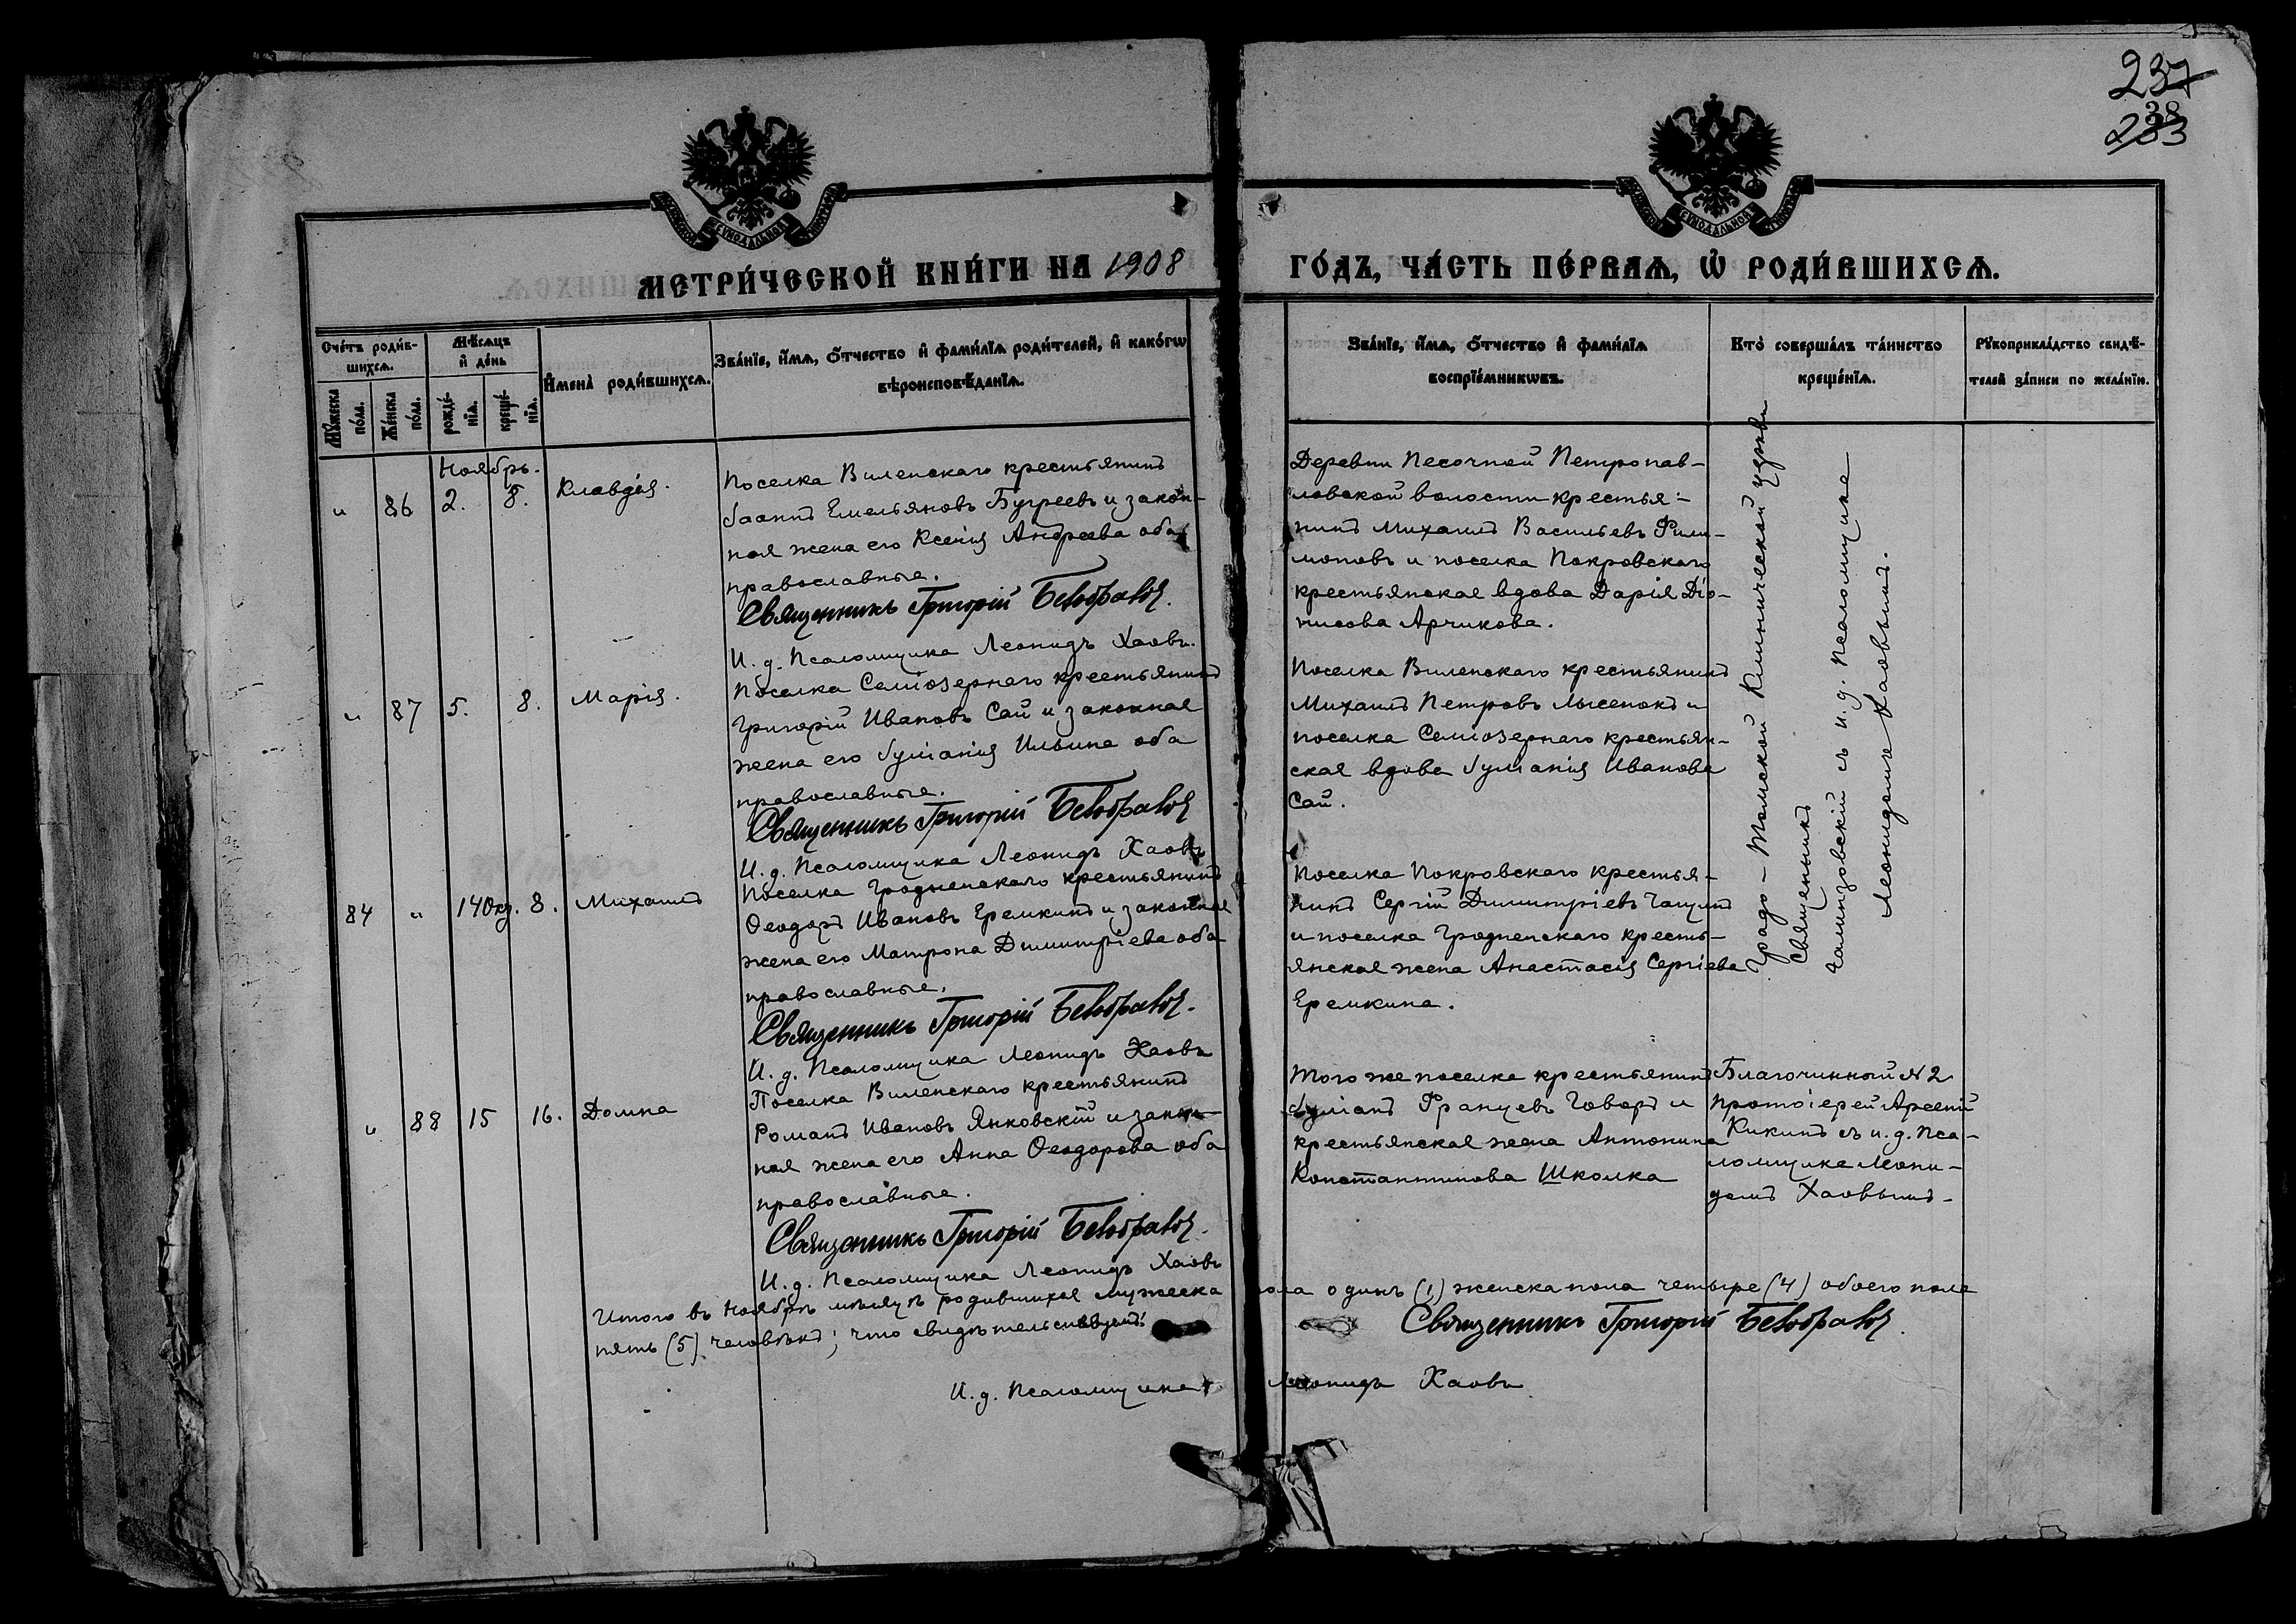 237
38
233
МЕТРИ́ЧЕСКОЙ КНИ́ГИ НА 1908 ГО́ДЪ, ЧА́СТЬ ПЕ́РВАѦ, Ѡ РОДИ́ВШИХСѦ.
Сче́тъ роди́в-
шихсѧ.
Мꙋ́жеска по́ла.
Же́нска по́ла.
Мѣ́сѧцъ и де́нь
рожде́-нїѧ.
креще́-нїѧ.
И҆мена̀ роди́вшихсѧ.
Зва́нїе, и҆́мѧ, о҆́тчество и҆ фами́лїѧ роди́телей, и҆ како́гѡ
вѣроисповѣ́данїѧ.
Зва́нїе, и҆́мѧ, о҆́тчество и҆ фами́лїѧ
воспрїе́мникѡвъ.
Кто̀ соверша́лъ та́инство
креще́нїѧ.
Рꙋкоприкла́дство свидѣ́-
телей за́писи по жела́нїю.
Ноябрь.
" 86 2. 8. Клавдія.
Поселка Виленскаго крестьянинъ
Іоаннъ Емельяновъ Бугреевъ и закон-
ная жена его Ксенія Андреева оба
православные.
Священникъ Григорій
И. д. Псаломщика Леонидъ Хаовъ.
Деревни Песочной Петропав-
ловской волости крестья-
нинъ Михаилъ Васильевъ Фили-
моновъ и поселка Покровскаго
крестьянская вдова Дарія Діо-
нисова Арчикова.
" 87 5. 8. Марія.
Поселка Семіозернаго крестьянинъ
Григорій Ивановъ Сай и законная
жена его Іуліанія Ильина оба
православные.
Священникъ Григорій
И. д. Псаломщика Леонидъ Хаовъ
Поселка Виленскаго крестьянинъ
Михаилъ Петровъ Лысенокъ и
поселка Семіозернаго крестьян-
ская вдова Іуліанія Иванова
Сай.
84 " 14 Окт. 8. Михаилъ
Поселка Гродненскаго крестьянинъ
Ѳеодоръ Ивановъ Еремкинъ и законная
жена его Матрона Димитріева оба
православные.
Священникъ Григорій
И. д. Псаломщика Леонидъ Хаовъ
Поселка Покровскаго крестья-
нинъ Сергій Димитріевъ Чащинъ
и поселка Гродненскаго кресть-
янская жена Анастасія Сергіева
Еремкина.
Градо-Томской Клинической церкви
Священникъ
съ и. д. псаломщика
Леонидомъ Хаовымъ.
" 88 15 16. Домна
Поселка Виленскаго крестьянинъ
Романъ Ивановъ Янковскій и закон-
ная жена его Анна Ѳеодорова оба
православные.
Священникъ Григорій
И. д. Псаломщика Леонидъ Хаовъ
Того же поселка крестьянинъ
Іуліанъ Францевъ Говоръ и
крестьянская жена Антонина
Константинова Школка
Благочинный № 2
протоіерей Арсеній
Кикинъ съ и. д. пса-
ломщика Леони-
домъ Хаовымъ.
Итого въ Ноябрѣ мѣсяцѣ родившихся мужеска пола одинъ (1) женска пола четыре (4) обоего пола
пять (5) человѣкъ; что свидѣтельствуемъ: Священникъ Григорій
И. д. Псаломщика Леонидъ Хаовъ